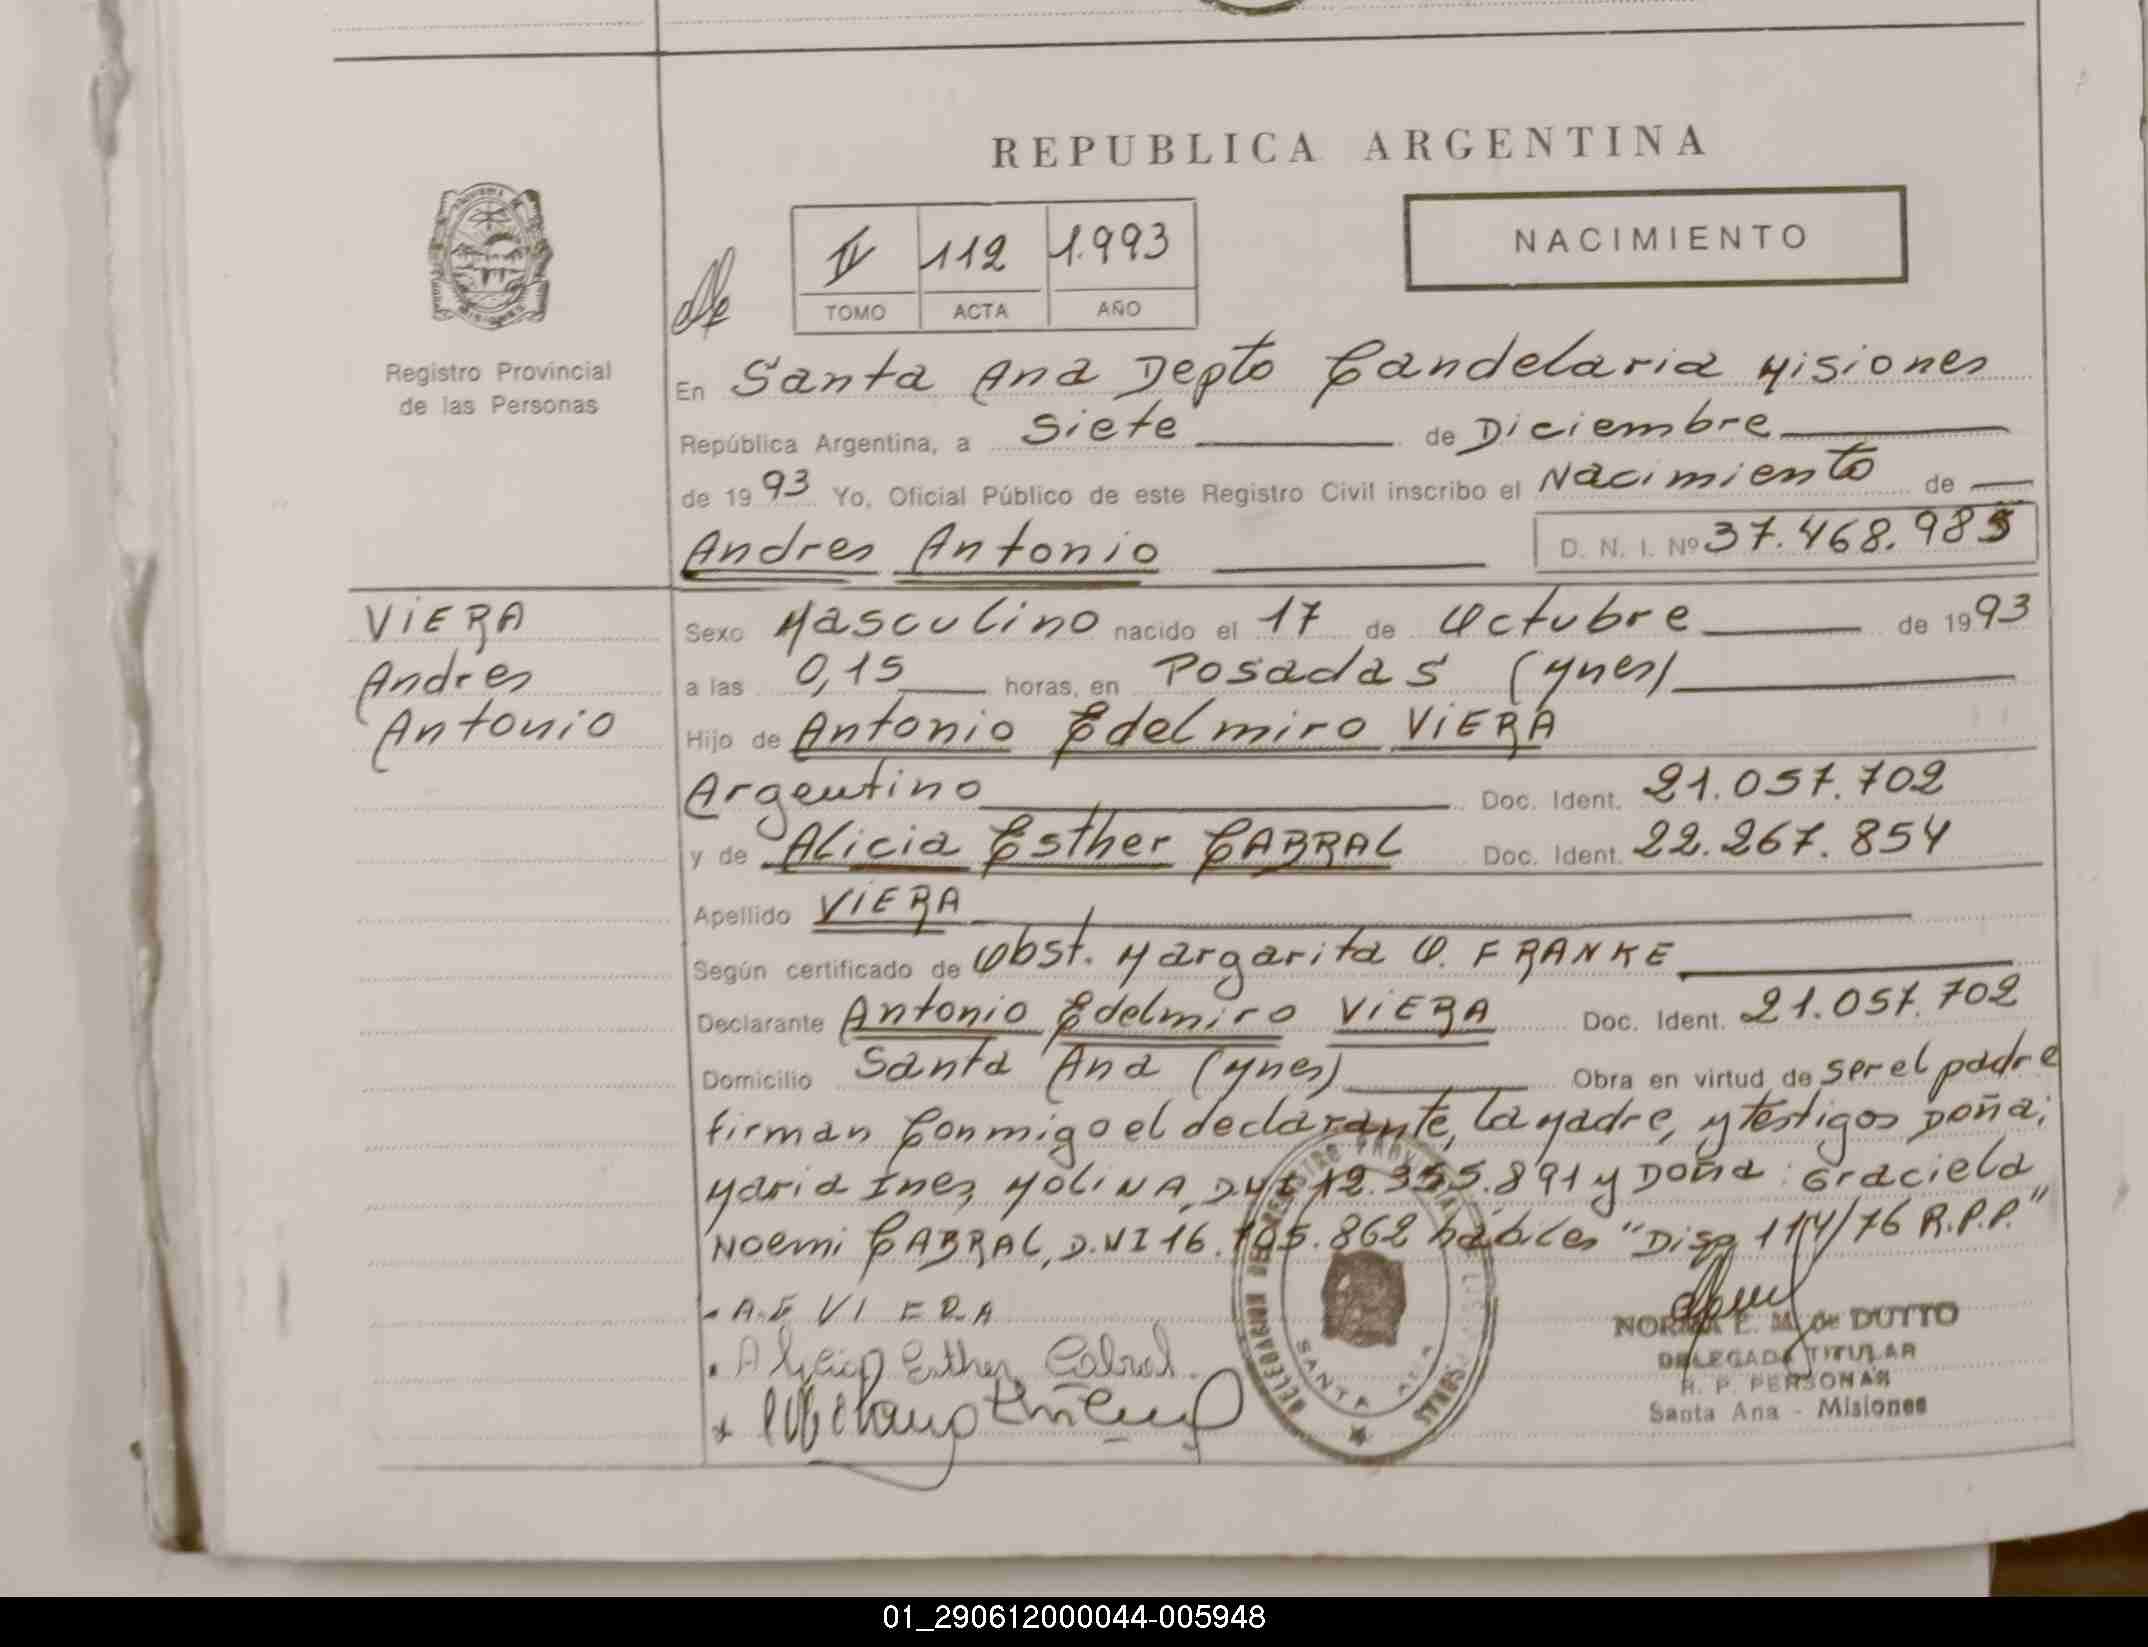 REPUBLICA ARGENTINA
NACIMIENTO
IV 112 1.993
TOMO ACTA AÑO
Registro Provincial
de las Personas
En Santa Ana Depto Candelaria Misiones
República Argentina, a siete de Diciembre
de 1993 Yo, Oficial Público de este Registro Civil inscribo el Nacimiento de
Andres Antonio D. N. I. Nº 37.468.985
VIERA
Andres
Antonio
Sexo Masculino nacido el 17 de Octubre de 1993
a las 0,15 horas, en Posadas (Mnes)
Hijo de Antonio Edelmiro VIERA
Argentino Doc. Ident. 21.057.702
y de Alicia Esther CABRAL Doc. Ident. 22.267.854
Apellido VIERA
Según certificado de Obst. Margarita O. FRANKE
Declarante Antonio Edelmiro VIERA Doc. Ident. 21.057.702
Domicilio Santa Ana (Mnes) Obra en virtud de ser el padre
firman Conmigo el declarante, la Madre, y testigos Doña;
Maria Ines MOLINA, DNI 12.355.891 y Doña: Graciela
Noemi CABRAL, D.NI 16.105.862 habiles "Disp 114/76 R.P.P."
A.E VIERA
Alicia Esther Cabral
NORMA E. M. de DUTTO
DELEGADA TITULAR
R. P. PERSONAS
Santa Ana - Misiones
SANTA ANA
01_290612000044-005948